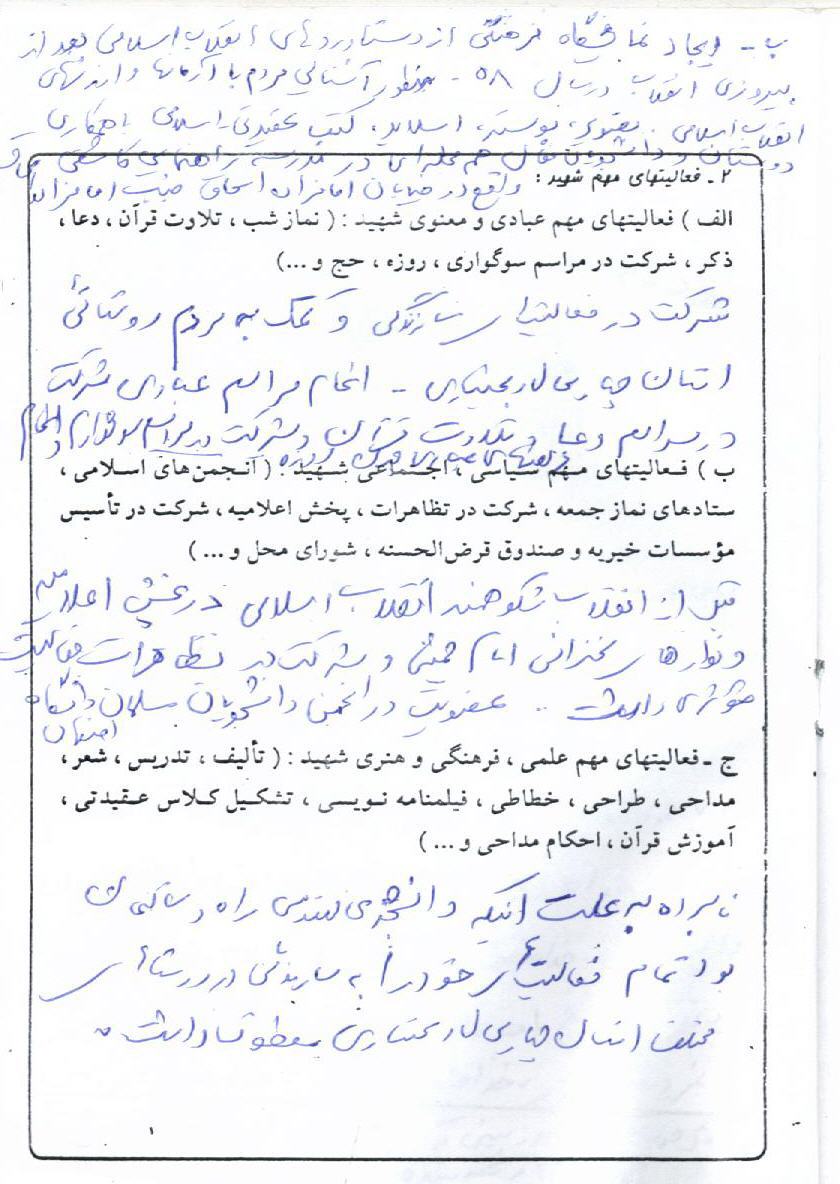 ب - ایجاد نمایشگاه فرهنگی از دستاوردهای انقلاب اسلامی بعد از
پیروزی انقلاب در سال ۵۸ - بمنظور آشنائی مردم با آرمانها و ارزشهای
انقلاب اسلامی. پوستر، اسلاید، کتب عقیدتی اسلامی با همکاری
دوستان و دانشجویان هم محله‌ای در مدرسه راهنمایی
واقع در خیابان امامزاده اسحاق جنب امامزاده
۲ ـ فعالیتهای مهم شهید :
الف ) فعالیتهای مهم عبادی و معنوی شهید : ( نماز شب ، تلاوت قرآن ، دعا ،
ذکر ، شرکت در مراسم سوگواری ، روزه ، حج و ...)
شرکت در فعالیتهای سازندگی و کمک به مردم روستائی
استان چهارمحال بختیاری - انجام مراسم عبادی شرکت
در مراسم دعا و تلاوت قرآن و شرکت در مراسم سوگواری و انجام
روزه
ب ) فـعالیتهای مهـم سیاسی ، اجتماعی شهید : ( انـجمن‌های اسـلامی ،
ستادهای نماز جمعه ، شرکت در تظاهرات ، پخش اعلامیه ، شرکت در تأسیس
مؤسسات خیریه و صندوق قرض‌الحسنه ، شورای محل و ... )
قبل از انقلاب شکوهمند انقلاب اسلامی در پخش اعلامیه
و نوارهای سخنرانی امام خمینی و شرکت در تظاهرات فعالیت
مؤثری داشت .. عضویت در انجمن دانشجویان مسلمان دانشگاه
اصفهان
ج ـ فعالیتهای مهم علمی ، فرهنگی و هنری شهید : ( تألیف ، تدریس ، شعر ،
مداحی ، طراحی ، خطاطی ، فیلمنامه نـویسی ، تشکـیل کـلاس عـقیدتی ،
آموزش قرآن ، احکام مداحی و ... )
نامبرده به علت اینکه دانشجوی مهندسی راه و ساختمان
بود تمام فعالیتهای خود را به سازندگی در روستاهای
مختلف استان چهارمحال بختیاری معطوف داشت.